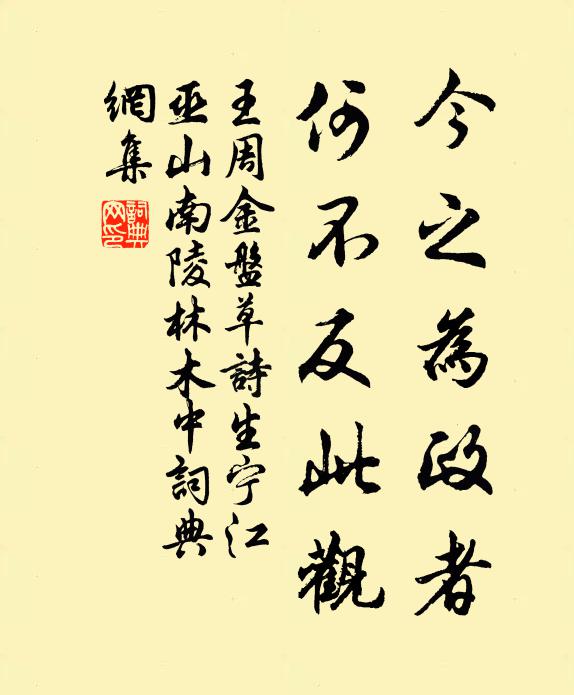 今之為政者
何不反此觀
王周金盤草詩生宁江
巫山南陵林木中詞典
網集
詞典
网印